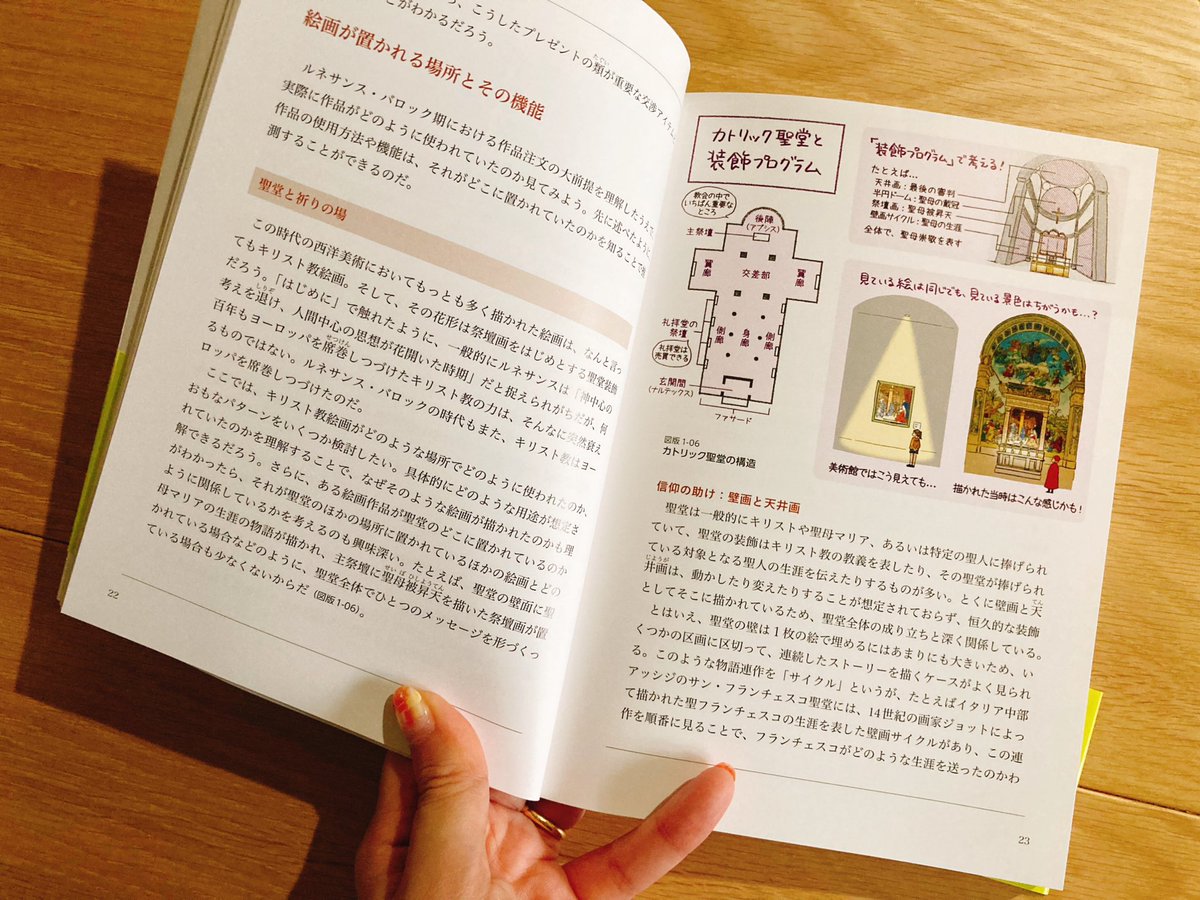 、こうしたプレゼントの類が重要な交渉アイテム
がわかるだろう。
絵画が置かれる場所とその機能
ルネサンス・バロック期における作品注文の大前提を理解したうえで、
実際に作品がどのように使われていたのか見てみよう。先に述べたように
作品の使用方法や機能は、それがどこに置かれていたのかを知ることで推
測することができるのだ。
聖堂と祈りの場
この時代の西洋美術においてもっとも多く描かれた絵画は、なんと言っ
てもキリスト教絵画。そして、その花形は祭壇画をはじめとする聖堂装飾
だろう。「はじめに」で触れたように、一般的にルネサンスは「神中心の
考えを退け、人間中心の思想が花開いた時期」だと捉えられがちだが、何
百年もヨーロッパを席巻しつづけたキリスト教の力は、そんなに突然衰え
るものではない。ルネサンス・バロックの時代もまた、キリスト教はヨー
ロッパを席巻しつづけたのだ。
ここでは、キリスト教絵画がどのような場所でどのように使われたのか、
おもなパターンをいくつか検討したい。具体的にどのような用途が想定さ
れていたのかを理解することで、なぜそのような絵画が描かれたのかも理
解できるだろう。さらに、ある絵画作品が聖堂のどこに置かれているのか
がわかったら、それが聖堂のほかの場所に置かれているほかの絵画とどの
ように関係しているかを考えるのも興味深い。たとえば、聖堂の壁面に聖
母マリアの生涯の物語が描かれ、主祭壇に聖母被昇天を描いた祭壇画が置
かれている場合などのように、聖堂全体でひとつのメッセージを形づくっ
ている場合も少なくないからだ（図版1-06）。
22
カトリック聖堂と
装飾プログラム
教会の中で
いちばん重要な
ところ
後陣
(アプシス)
主祭壇
翼廊
交差部
翼廊
礼拝堂の
祭壇
礼拝堂は
売買できる
側廊
身廊
側廊
玄関間
(ナルテックス)
ファサード
図版1-06
カトリック聖堂の構造
「装飾プログラム」で考える！
たとえば…
天井画：最後の審判
半円ドーム：聖母の戴冠
祭壇画：聖母被昇天
壁画サイクル：聖母の生涯
全体で、聖母崇敬を表す
見ている絵は同じでも、見ている景色はちがうかも…？
美術館ではこう見えても…
描かれた当時はこんな感じかも！
信仰の助け：壁画と天井画
聖堂は一般的にキリストや聖母マリア、あるいは特定の聖人に捧げられ
ていて、聖堂の装飾はキリスト教の教義を表したり、その聖堂が捧げられ
ている対象となる聖人の生涯を伝えたりするものが多い。とくに壁画と天
井画は、動かしたり変えたりすることが想定されておらず、恒久的な装飾
としてそこに描かれているため、聖堂全体の成り立ちと深く関係している。
とはいえ、聖堂の壁は1枚の絵で埋めるにはあまりにも大きいため、い
くつかの区画に区切って、連続したストーリーを描くケースがよく見られ
る。このような物語連作を「サイクル」というが、たとえばイタリア中部
アッシジのサン・フランチェスコ聖堂には、14世紀の画家ジョットによっ
て描かれた聖フランチェスコの生涯を表した壁画サイクルがあり、この連
作を順番に見ることで、フランチェスコがどのような生涯を送ったのかわ
23